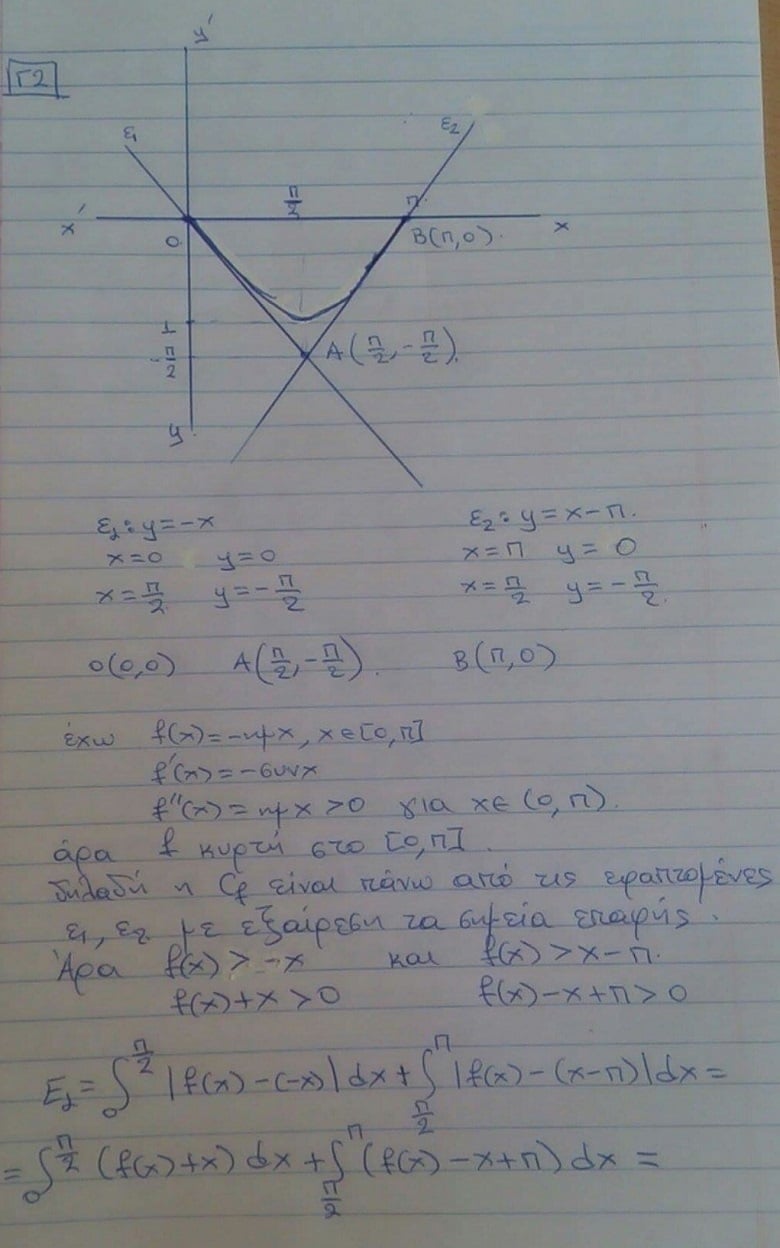 y'
Γ2
ε₁ ε₂
π/2 π
x' x
0 B(π,0).
1
-π/2 A(π/2,-π/2).
y
ε₁: y=-x ε₂: y=x-π.
x=0 y=0 x=π y=0
x=π/2 y=-π/2 x=π/2 y=-π/2.
O(0,0) A(π/2,-π/2). B(π,0)
έχω f(x)=-ημx, x∈[0,π]
f'(x)=-συνx
f''(x)=ημx>0 για x∈(0,π).
άρα f κυρτή στο [0,π].
δηλαδή η Cf είναι πάνω από τις εφαπτομένες
ε₁, ε₂ με εξαίρεση τα σημεία επαφής.
Άρα f(x)>-x και f(x)>x-π.
f(x)+x>0 f(x)-x+π>0
E₁=∫₀^(π/2) |f(x)-(-x)|dx+∫_(π/2)^π |f(x)-(x-π)|dx=
=∫₀^(π/2) (f(x)+x)dx+∫_(π/2)^π (f(x)-x+π)dx=